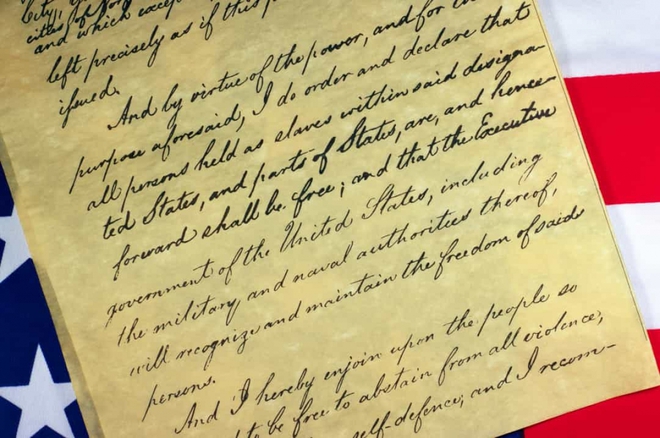 City,
cities of
and which excep
left precisely as if this p
issued.
And by virtue of the power, and for
purpose aforesaid, I do order and declare that
all persons held as slaves within said designa-
ted States, and parts of States, are, and hence-
forward shall be free; and that the Executive
government of the United States, including
the military and naval authorities thereof,
will recognize and maintain the freedom of said
persons.
And I hereby enjoin upon the people so
to be free to abstain from all violence,
self-defence; and I recom-